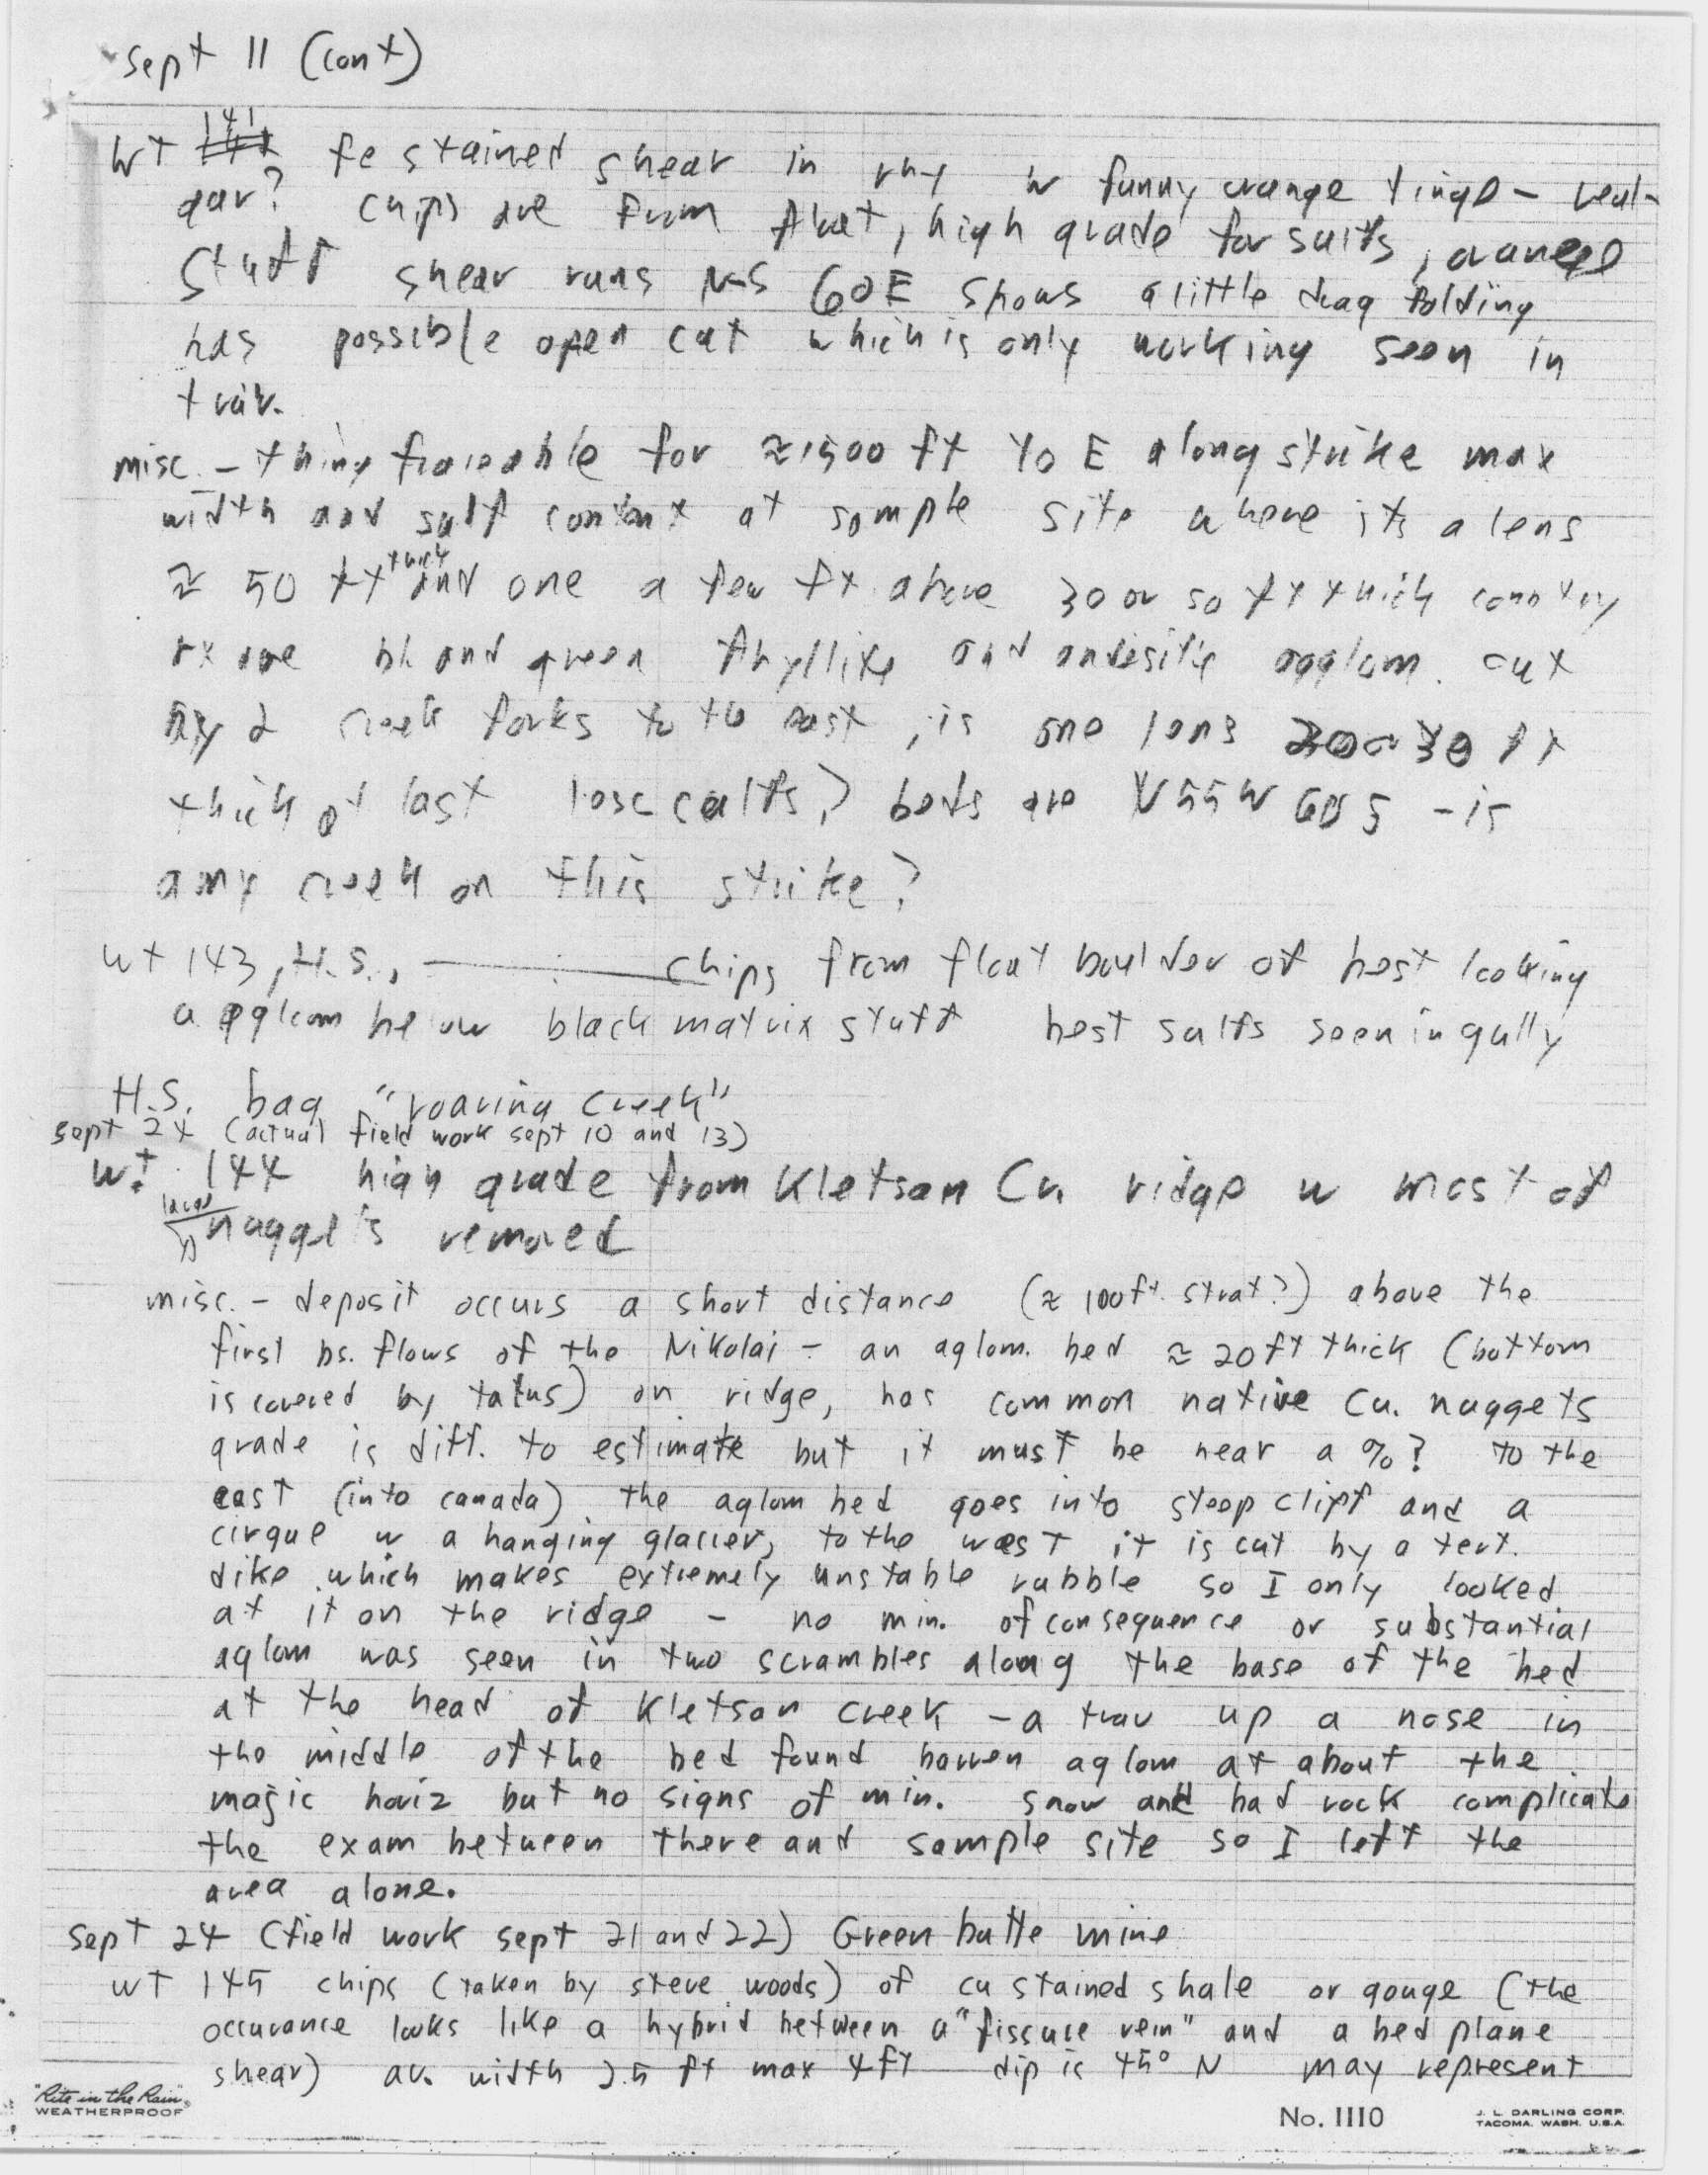 sept 11 (cont)
wt 141 fe stained shear in rhy w funny orange tinge - real-
gar? chips are from float, high grade for sulfs, orange
stuff shear runs N-S 60E shows a little drag folding
has possible open cut which is only working seen in
trav.
misc. - thing traceable for ≈1500 ft to E along strike max
width and sulf content at sample site where its a lens
≈ 50 ft thick and one a few ft above 30 or so ft thick country
rx are bk and green phyllite and andesitic agglom. cut
by 2 creek forks to the east, is one lens 30 ft
thick at last beds are N55W 60S - is
any creek on this strike?
wt 143, H.S., chips from float boulder of best looking
agglom below black matrix stuff best sulfs seen in gully
H.S. bag "roaring creek"
sept 24 (actual field work sept 10 and 13)
wt. 144 high grade from Kletsan Cu. ridge w most of
large nuggets removed
misc. - deposit occurs a short distance (≈ 100ft. strat?) above the
first bs. flows of the Nikolai - an aglom. bed ≈ 20ft thick (bottom
is covered by talus) on ridge, has common native Cu. nuggets
grade is diff. to estimate but it must be near a %? to the
east (into canada) the aglom bed goes into steep cliff and a
cirque w a hanging glacier, to the west it is cut by a tert.
dike which makes extremely unstable rubble so I only looked
at it on the ridge - no min. of consequence or substantial
aglom was seen in two scrambles along the base of the bed
at the head of Kletsan creek - a trav up a nose in
the middle of the bed found barren aglom at about the
magic horiz but no signs of min. snow and bad rock complicate
the exam between there and sample site so I left the
area alone.
sept 24 (field work sept 21 and 22) Green butte mine
wt 145 chips (taken by steve woods) of cu stained shale or gouge (the
occurance looks like a hybrid between a "fissure vein" and a bed plane
shear) av. width 2.5 ft max 4ft dip is 45° N may represent
"Rite in the Rain"
WEATHERPROOF
No. 1110
J. L. DARLING CORP.
TACOMA, WASH. U.S.A.